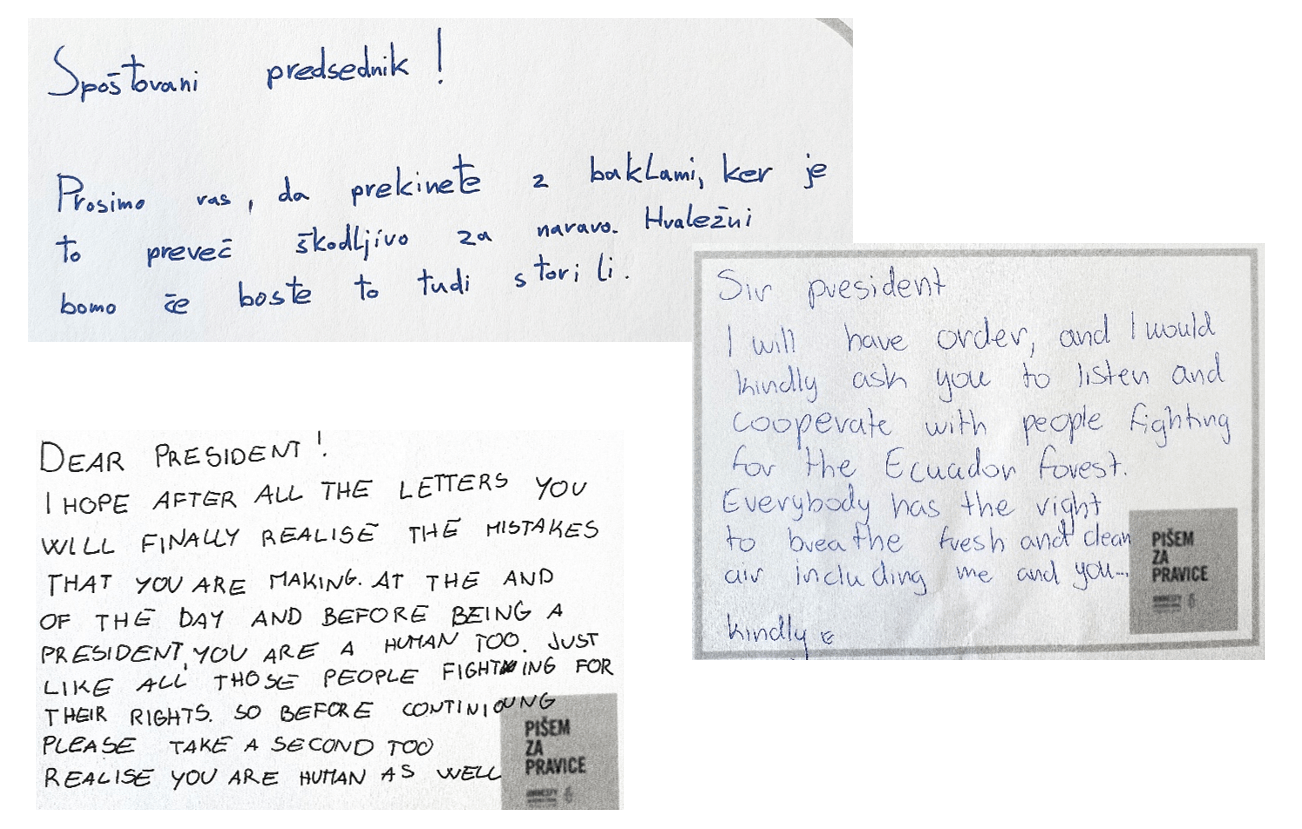 Spoštovani predsednik!
Prosimo vas, da prekinete z baklami, ker je
to preveč škodljivo za naravo. Hvaležni
bomo če boste to tudi storili.
Sir president
I will have order, and I would
kindly ask you to listen and
cooperate with people fighting
for the Ecuador forest.
Everybody has the right
to breathe fresh and clean
air including me and you...
kindly
PIŠEM
ZA
PRAVICE
DEAR PRESIDENT!
I HOPE AFTER ALL THE LETTERS YOU
WILL FINALLY REALISE THE MISTAKES
THAT YOU ARE MAKING. AT THE AND
OF THE DAY AND BEFORE BEING A
PRESIDENT, YOU ARE A HUMAN TOO. JUST
LIKE ALL THOSE PEOPLE FIGHTING FOR
THEIR RIGHTS. SO BEFORE CONTINIOUNG
PLEASE TAKE A SECOND TOO
REALISE YOU ARE HUMAN AS WELL
PIŠEM
ZA
PRAVICE